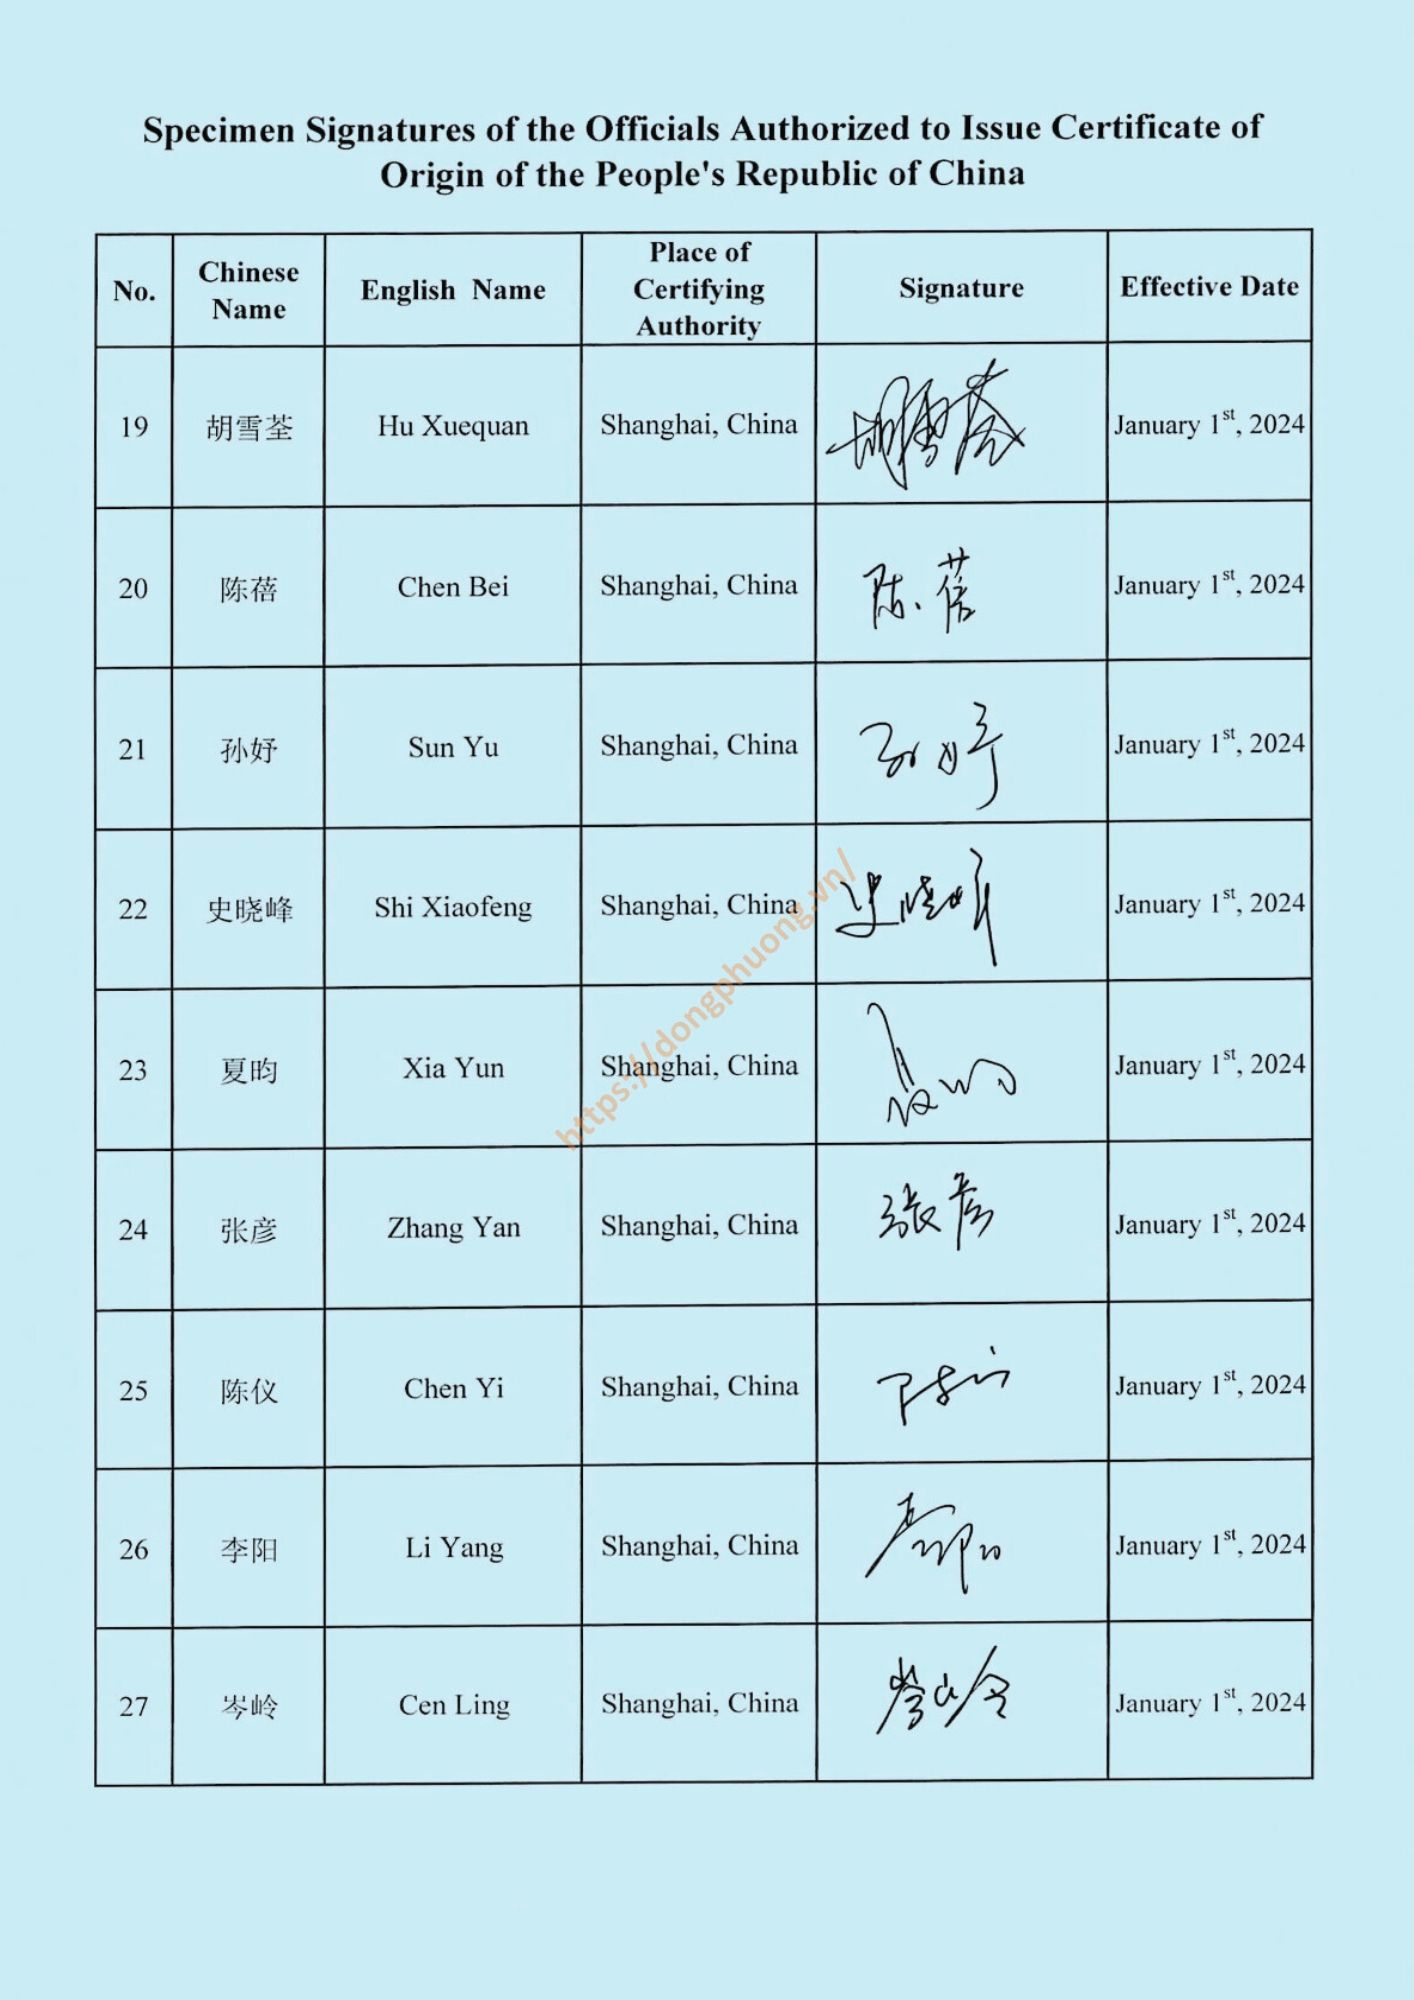 Specimen Signatures of the Officials Authorized to Issue Certificate of
Origin of the People's Republic of China
No. Chinese Name English Name Place of Certifying Authority Signature Effective Date
19 胡雪荃 Hu Xuequan Shanghai, China 胡雪荃 January 1st, 2024
20 陈蓓 Chen Bei Shanghai, China 陈蓓 January 1st, 2024
21 孙妤 Sun Yu Shanghai, China 孙妤 January 1st, 2024
22 史晓峰 Shi Xiaofeng Shanghai, China 史晓峰 January 1st, 2024
23 夏昀 Xia Yun Shanghai, China January 1st, 2024
24 张彦 Zhang Yan Shanghai, China 张彦 January 1st, 2024
25 陈仪 Chen Yi Shanghai, China 陈仪 January 1st, 2024
26 李阳 Li Yang Shanghai, China January 1st, 2024
27 岑岭 Cen Ling Shanghai, China 岑岭 January 1st, 2024
https://dongphuong.vn/